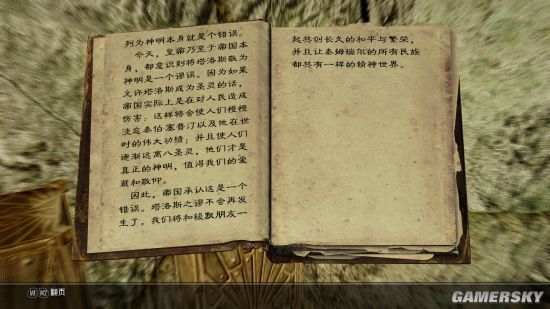 列为神明本身就是个错误。
今天，皇帝乃至于帝国本
身，都意识到将塔洛斯敬为
神明是一个谬误。因为如果
允许塔洛斯成为圣灵的话，
帝国实际上是在对人民造成
伤害：这样将会使人们慢慢
淡忘泰伯·塞普汀以及他在世
时的伟大功绩；并且使人们
逐渐远离八圣灵，他们才是
真正的神明，值得我们的爱
戴和敬仰。
因此，帝国承认这是一个
错误。塔洛斯之谬不会再发
生了。我们将和梭默朋友一
起共创长久的和平与繁荣，
并且让泰姆瑞尔的所有民族
都共有一样的精神世界。
翻页
GAMERSKY